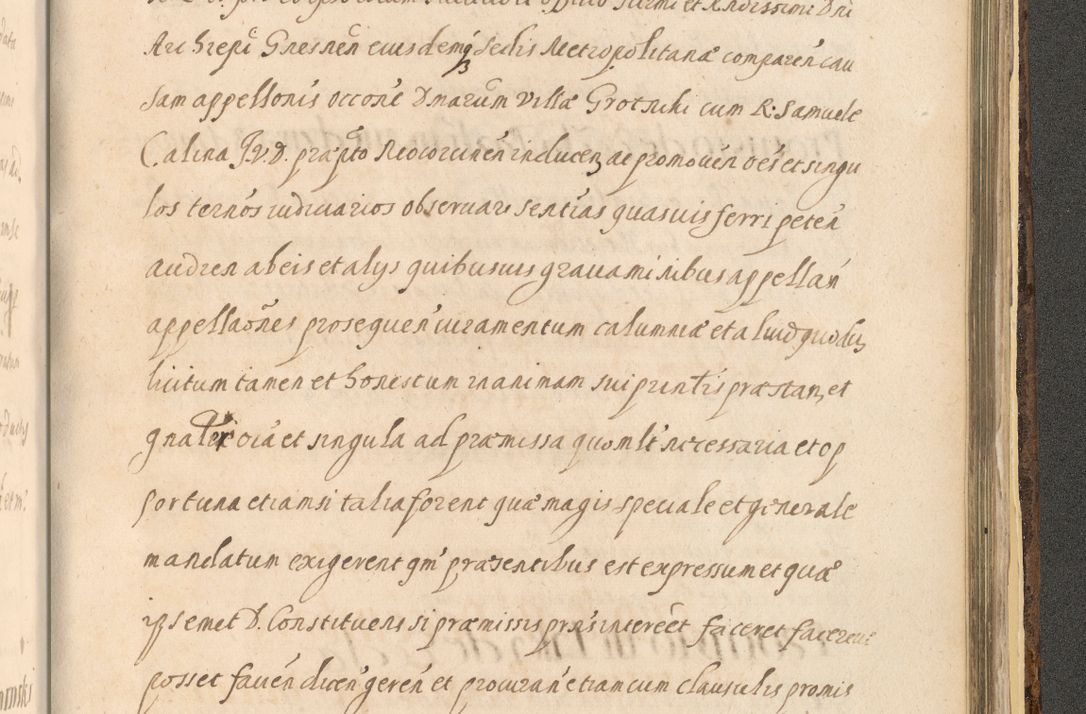 Archrepi Gnesnen eiusdemq3 Sedis Metropolitanæ comparen cau
sam appellonis occone Dnarum Villæ Grotniki cum R: Samuele
Calina J.V.D. præpto Neocorcinen inducen ac promoven oes et singu
los ternos iudiciarios observare sentias quasuis ferri peten
audien ab eis et alys quibusuis gravaminibus appellan
appellaones prosequen iuramentum calumniæ et aliud quodu3
licitum tamen et honestum in animam sui pnntis præstan, et
gnater oia et singula ad præmissa quomlt necessaria et op
portuna etiamsi talia forent quæ magis speciale et generale
mandatum exigerent qm præsentibus est expressum et quæ
ipsemet D. Constituens si præmissis pns interéet faceret facereue
posset faven dicen geren et procuran etiam cum clausulis promis